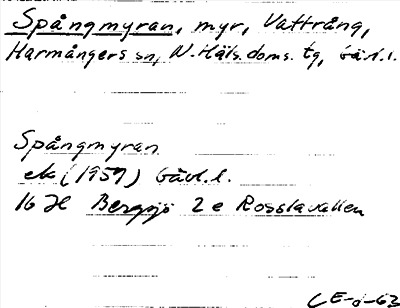 Spångmyran, myr, Vattrång,
Harmångers sn, N. Häls. doms. tg, Gävl. l.
Spångmyran
ek (1957) Gävl. l.
16 H Bergsjö 2 e Rosslavallen
CE-ö-63